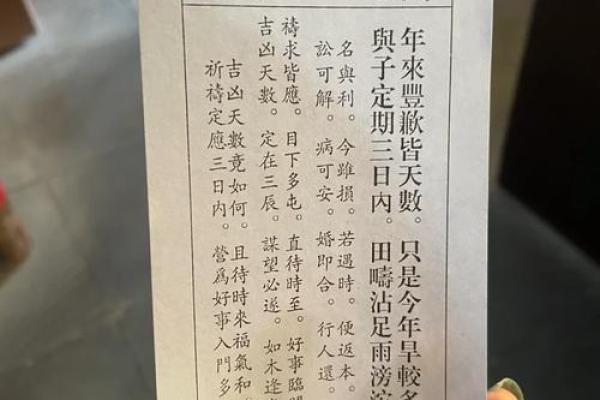 年來豐歉皆天數。只是今年旱較多
與子定期三日內。田疇沾足雨滂沱
名與利。今雖損。若遇時。便返本。
訟可解。病可安。婚即合。行人還。
禱求皆應。目下多屯。直待時至。好事臨門
吉凶天數。定在三辰。謀望必遂。如木逢
吉凶天數竟如何。且待時來福氣和。
祈禱定應三日內。營爲好事入門多